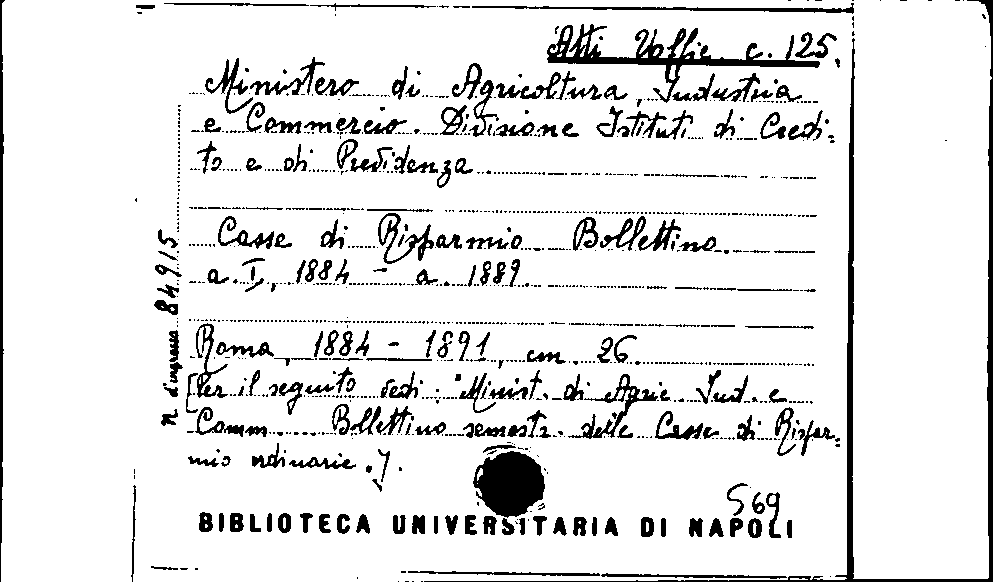 Atti Uffic. c. 125.
Ministero di Agricoltura, Industria
e Commercio. Divisione Istituti di Credi=
to e di Previdenza.
Casse di Risparmio. Bollettino.
a. I, 1884 - a. 1889.
Roma, 1884 - 1891, cm. 26.
[Per il seguito vedi: "Minist. di Agric. Ind. e
Comm.... Bollettino semestr. delle Casse di Rispar=
mio ordinarie.].
n. d'ingresso 84915
569
BIBLIOTECA UNIVERSITARIA DI NAPOLI